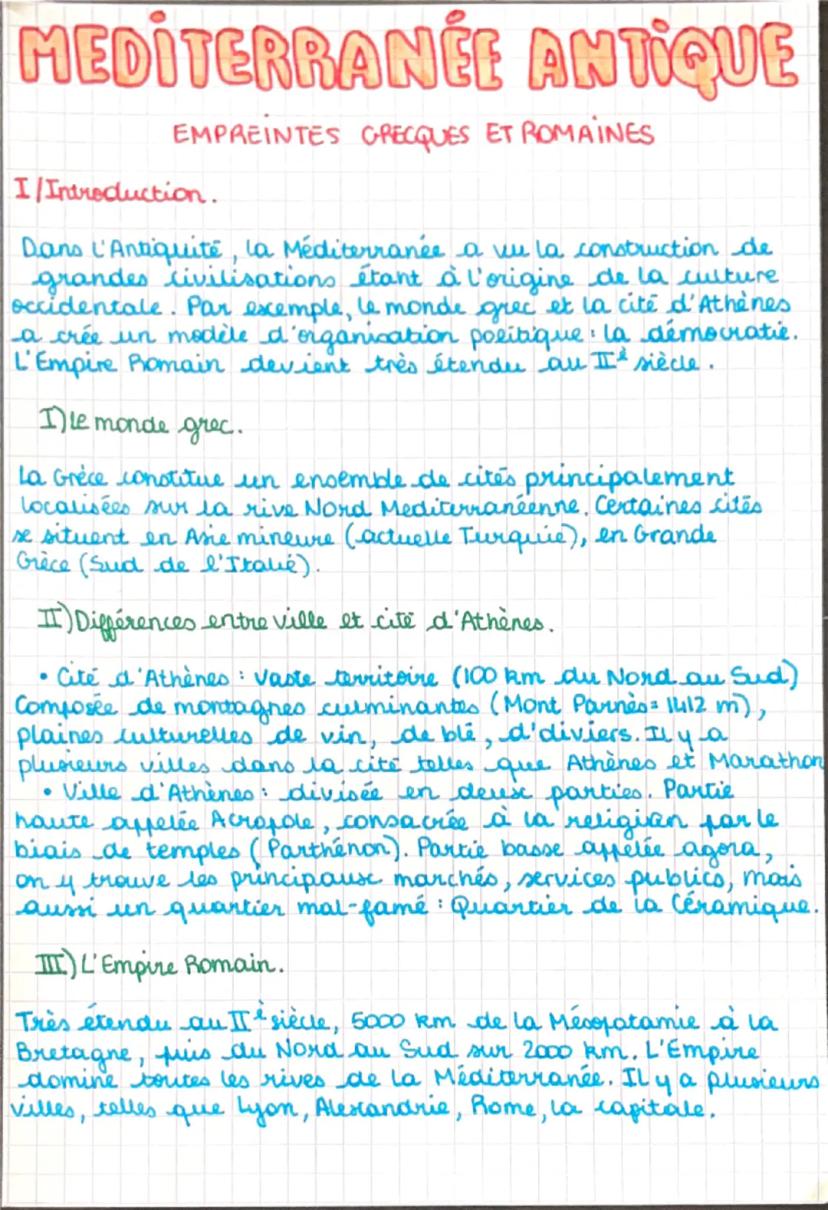 MEDITERRANÉE ANTIQUE
EMPREINTES GRECQUES ET ROMAINES
I/Introduction.
Dans l'Antiquité, la Méditerranée a vu la construction de
grandes civilisations étant à l'origine de la culture
occidentale. Par exemple, le monde grec et la cité d'Athènes
a crée un modèle d'organisation politique : la démocratie.
L'Empire Romain devient très étendu au IIè siècle.
I) Le monde grec.
La Grèce constitue un ensemble de cités principalement
localisées sur la rive Nord Mediterranéenne. Certaines cités
se situent en Asie mineure (actuelle Turquie), en Grande
Grèce (Sud de l'Italie).
II) Différences entre ville et cité d'Athènes.
• Cité d'Athènes : Vaste territoire (100 km du Nord au Sud)
Composée de montagnes culminantes (Mont Parnès = 1412 m),
plaines culturelles de vin, de blé, d'oliviers. Il y a
plusieurs villes dans la cité telles que Athènes et Marathon
• Ville d'Athènes : divisée en deux parties. Partie
haute appelée Acropole, consacrée à la religion par le
biais de temples (Parthénon). Partie basse appelée agora,
on y trouve les principaux marchés, services publics, mais
aussi un quartier mal-famé : Quartier de la Céramique.
III) L'Empire Romain.
Très étendu au IIè siècle, 5000 km de la Mésopotamie à la
Bretagne, puis du Nord au Sud sur 2000 km. L'Empire
domine toutes les rives de la Méditerranée. Il y a plusieurs
villes, telles que Lyon, Alexandrie, Rome, la capitale.